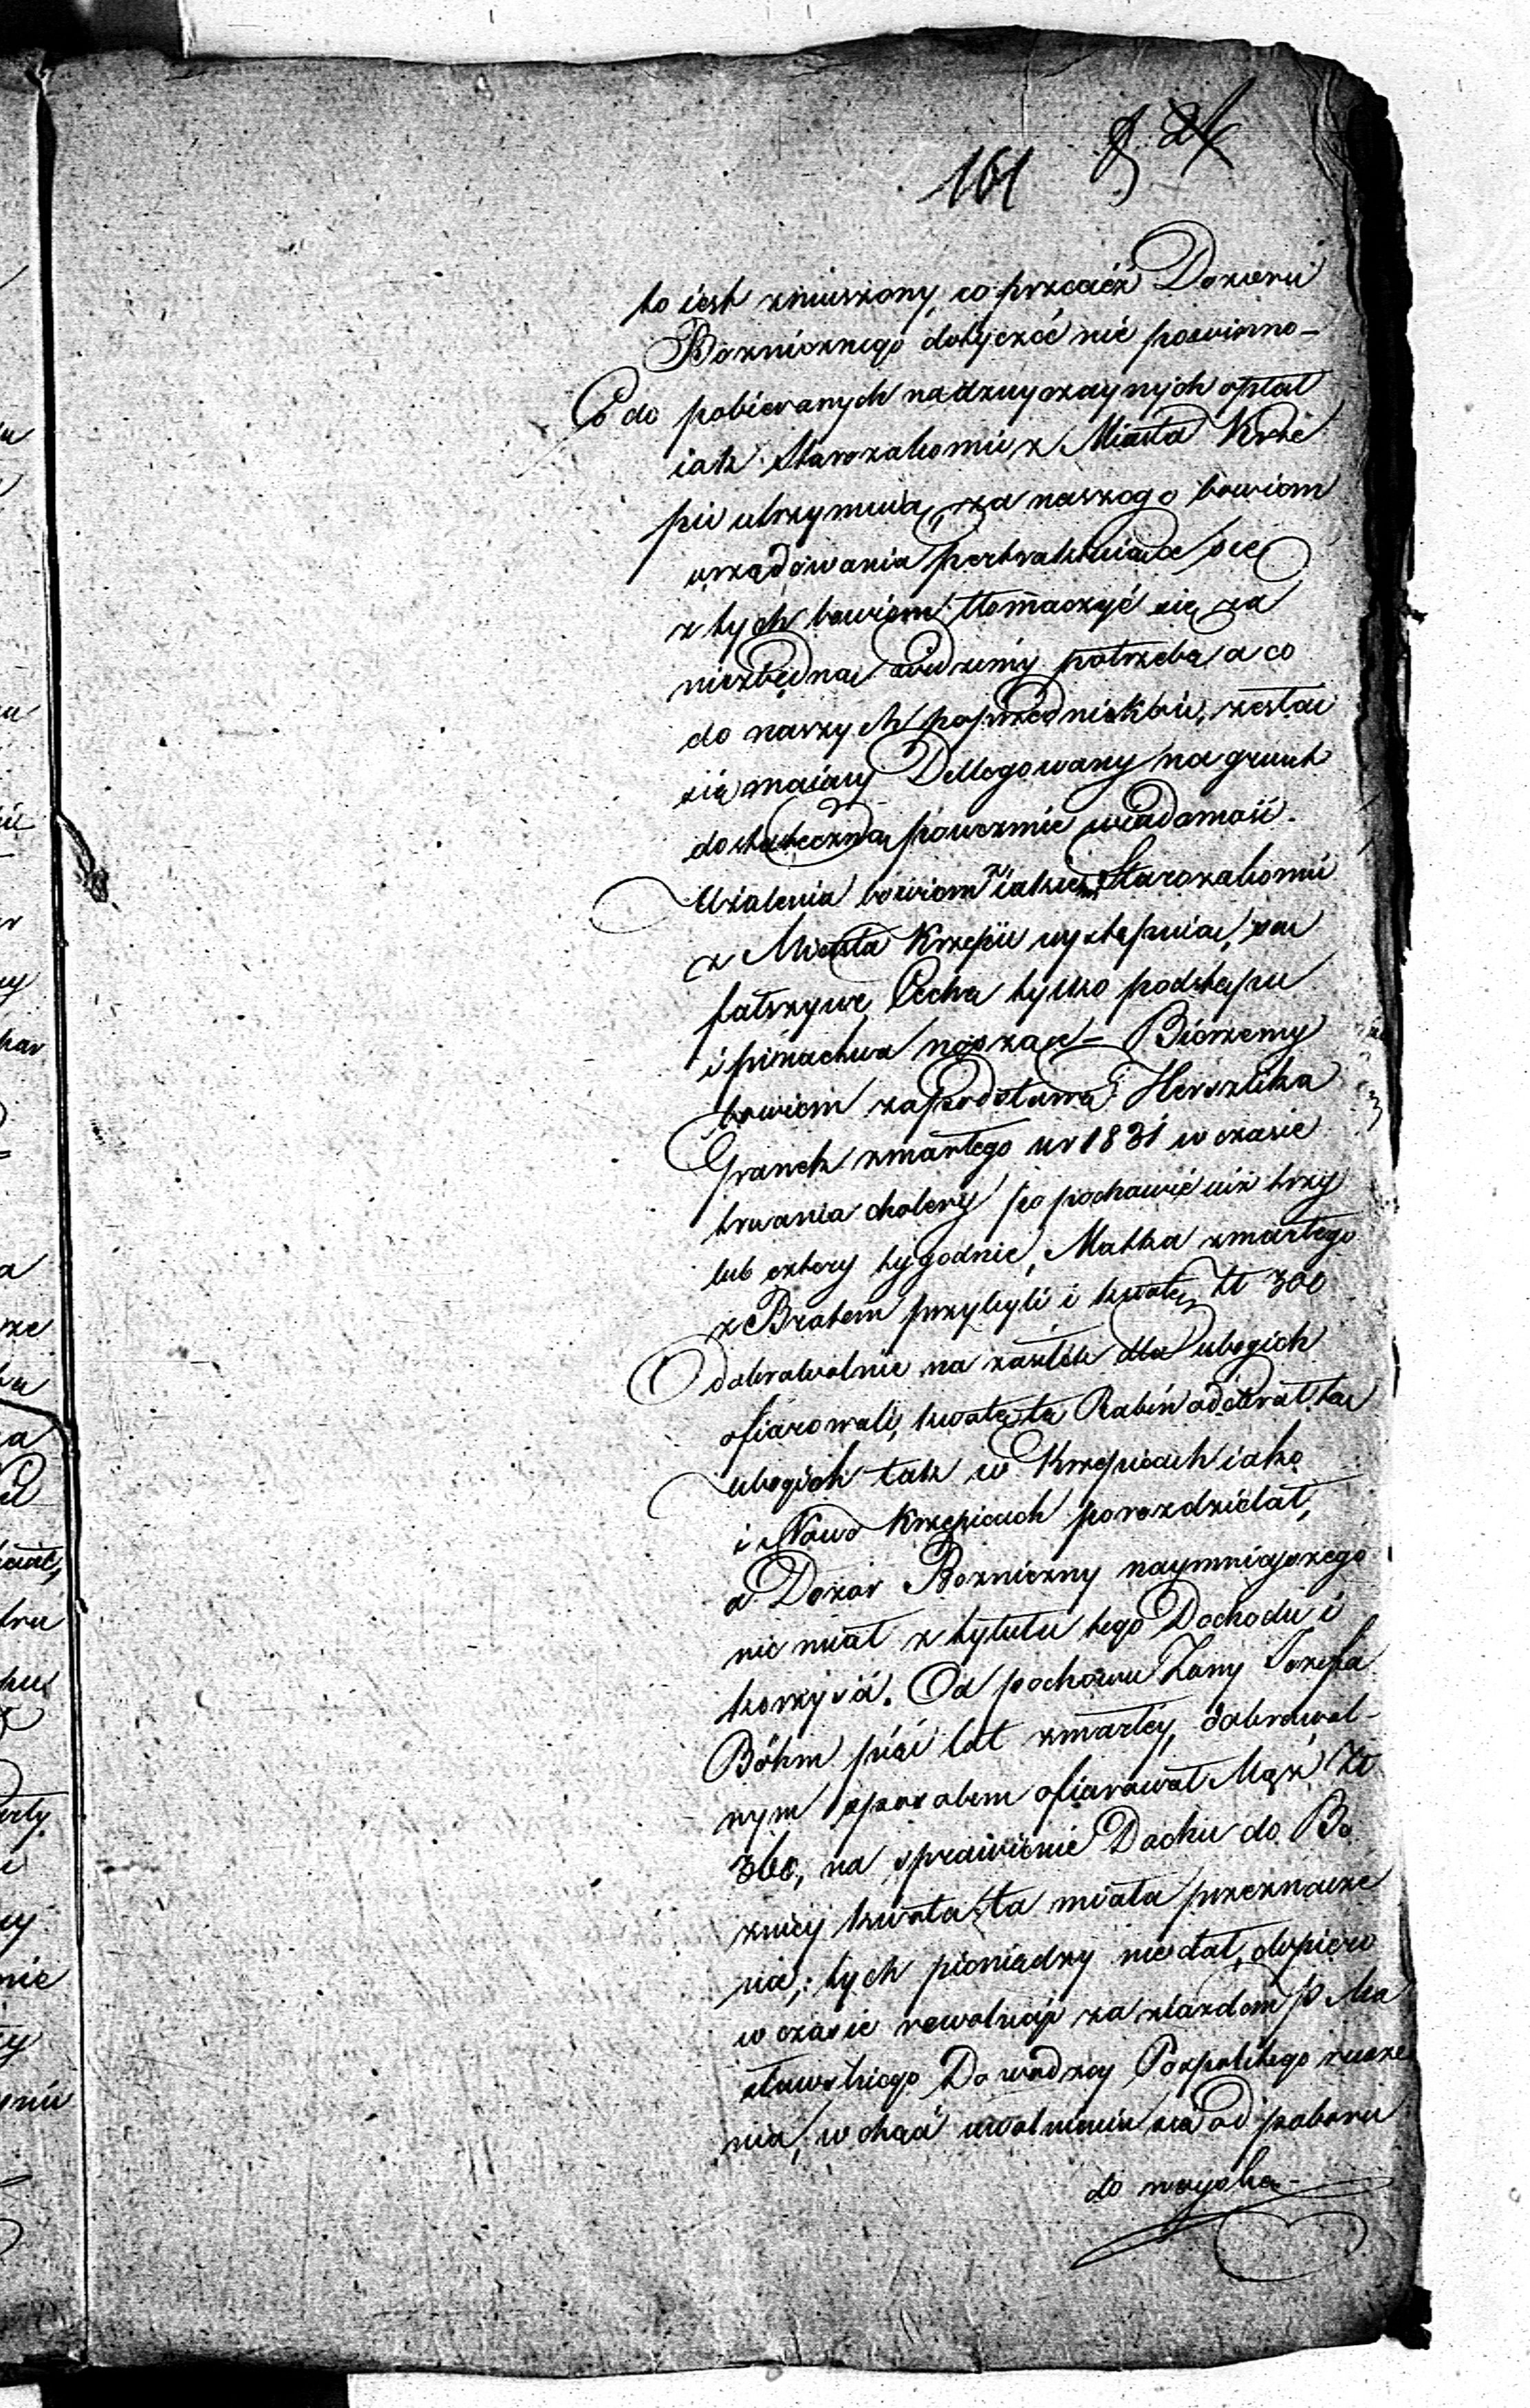 161
to iest zmuszony, co przecież Dozoru
Boznicznego dotyczéć nié powinno –
Co do pobieranych nadzwyczaynych opłat
iak Starozakonni z Miasta Krze
pic utrzymuią, za naszego bowiem
urzędowania pertraktuiące się
z tych bowiem tłomaczyć się za
niezbędną widziemy potrzebę a co
do naszych poprzedników, zestac
się maiący Dellegowany na grunt
dostateczną powezmie wiadomość.
Użalenia bowiem z iakiem Starozakonni
z Miasta Krzepic występuią, są
fałszywe, Cechę tylko podstępu
i pieniactwa noszące – Bierzemy
bowiem za podstawę Herszlika
Granek zmarłego w r 1831 w czasie
trwania cholery, po pochowie iuż trzy
lub cztery tygodnie, Matka zmarłego
z Bratem przybyli i kwotę zł 300
dobrowolnie na zasiłek dla ubogich
ofiarowali, kwotę tę Rabin odebrał na
ubogich tak w Krzepicach iako
i Nowo Krzepicach porozdzielał,
a Dozor Bozniczny naymnieyszego
nie miał z tytułu tego Dochodu i
korzyści. Od pochowu Żony Jozefa
Böhm pięć lat zmarłey, dobrowol-
nym sposobem ofiarował Mąż Zł
360, na sprawienie Dachu do Bo
znicy kwota ta miała przeznacze
nie; tych pieniędzy nie dał, dopiero
w czasie rewolucyi za zjazdem P. Ma
sławskiego Dowodzcy Pospolitego rusze
nia, w chęci uwolnienia się od poboru
do woyska –